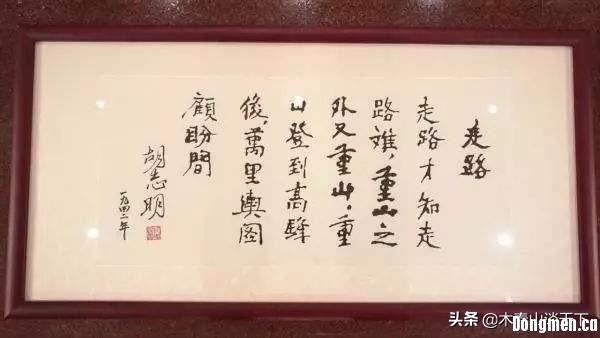 走路
走路才知走
路难，重山之
外又重山，重
山登到高峰
後，萬里輿图
顧盼間
胡志明
一九四二年
头条 @木春山谈天下
Dongmen.ca